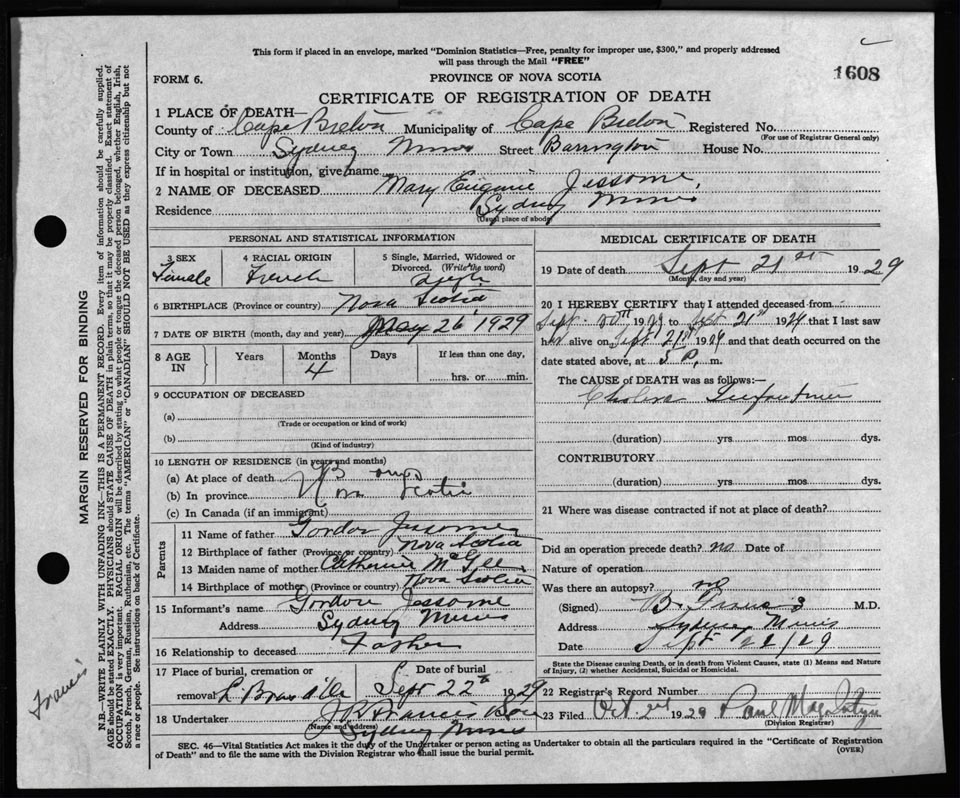 This form if placed in an envelope, marked "Dominion Statistics—Free, penalty for improper use, $300," and properly addressed
will pass through the Mail "FREE"
FORM 6.
PROVINCE OF NOVA SCOTIA
1608
CERTIFICATE OF REGISTRATION OF DEATH
1 PLACE OF DEATH—
County of Cape Breton Municipality of Cape Breton Registered No.
(For use of Registrar General only)
City or Town Sydney Mines Street Barrington House No.
If in hospital or institution, give name
2 NAME OF DECEASED Mary Eugenie Jessome,
Residence Sydney Mines
(Usual place of abode)
PERSONAL AND STATISTICAL INFORMATION
3 SEX Female
4 RACIAL ORIGIN French
5 Single, Married, Widowed or Divorced. (Write the word)
6 BIRTHPLACE (Province or country) Nova Scotia
7 DATE OF BIRTH (month, day and year) May 26, 1929
8 AGE IN Years Months 4 Days If less than one day, hrs. or min.
9 OCCUPATION OF DECEASED
(a)
(Trade or occupation or kind of work)
(b)
(Kind of industry)
10 LENGTH OF RESIDENCE (in years and months)
(a) At place of death
(b) In province Nova Scotia
(c) In Canada (if an immigrant)
Parents
11 Name of father Gordon Jessome
12 Birthplace of father (Province or country) Nova Scotia
13 Maiden name of mother Catherine McGee
14 Birthplace of mother (Province or country) Nova Scotia
15 Informant's name Gordon Jessome
Address Sydney Mines
16 Relationship to deceased Father
17 Place of burial, cremation or removal Date of burial Sept 22nd 1929
18 Undertaker
(Name and address)
Sydney Mines
MEDICAL CERTIFICATE OF DEATH
19 Date of death Sept 21st 1929
(Month, day and year)
20 I HEREBY CERTIFY that I attended deceased from
Sept. 20th 1929 to Sept 21st 1929 that I last saw
her alive on Sept 21st 1929 and that death occurred on the
date stated above, at 5 P. m.
The CAUSE OF DEATH was as follows:—
Cholera Infantum
(duration) yrs mos dys.
CONTRIBUTORY
(duration) yrs. mos. dys.
21 Where was disease contracted if not at place of death?
Did an operation precede death? no Date of
Nature of operation
Was there an autopsy? no
(Signed) M.D.
Address Sydney Mines
Date Sept 22/29
State the Disease causing Death, or in Death from Violent Causes, state (1) Means and Nature
of Injury, (2) whether Accidental, Suicidal or Homicidal.
22 Registrar's Record Number
23 Filed Oct 2nd 1929 Paul
(Division Registrar)
SEC. 46—Vital Statistics Act makes it the duty of the Undertaker or person acting as Undertaker to obtain all the particulars required in the "Certificate of Registration
of Death" and to file the same with the Division Registrar who shall issue the burial permit.
(OVER)
MARGIN RESERVED FOR BINDING
N.B.—WRITE PLAINLY WITH UNFADING INK—THIS IS A PERMANENT RECORD. Every item of information should be carefully supplied.
AGE should be stated EXACTLY. PHYSICIANS should STATE CAUSE OF DEATH in plain terms, so that it may be properly classified. Exact statement of
OCCUPATION is very important. RACIAL ORIGIN will be described by stating to what people or tongue the deceased person belonged, whether English, Irish,
Scotch, French, German, Russian, Ruthenian, etc. The terms "AMERICAN" or "CANADIAN" SHOULD NOT BE USED as they express citizenship but not
a race or people. See instructions on back of Certificate.
Francis